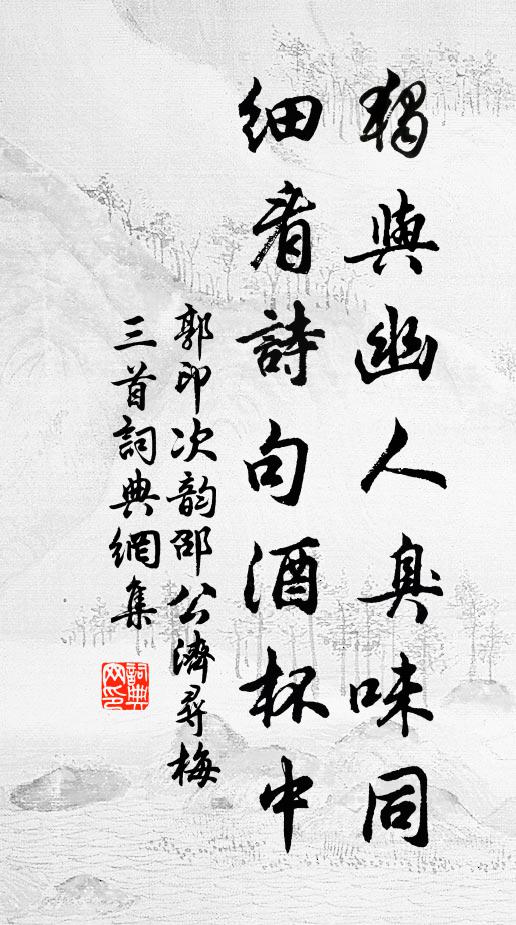 獨與幽人臭味同
細看詩句酒杯中
郭印次韵邵公濟尋梅
三首詞典網集
詞典
网印